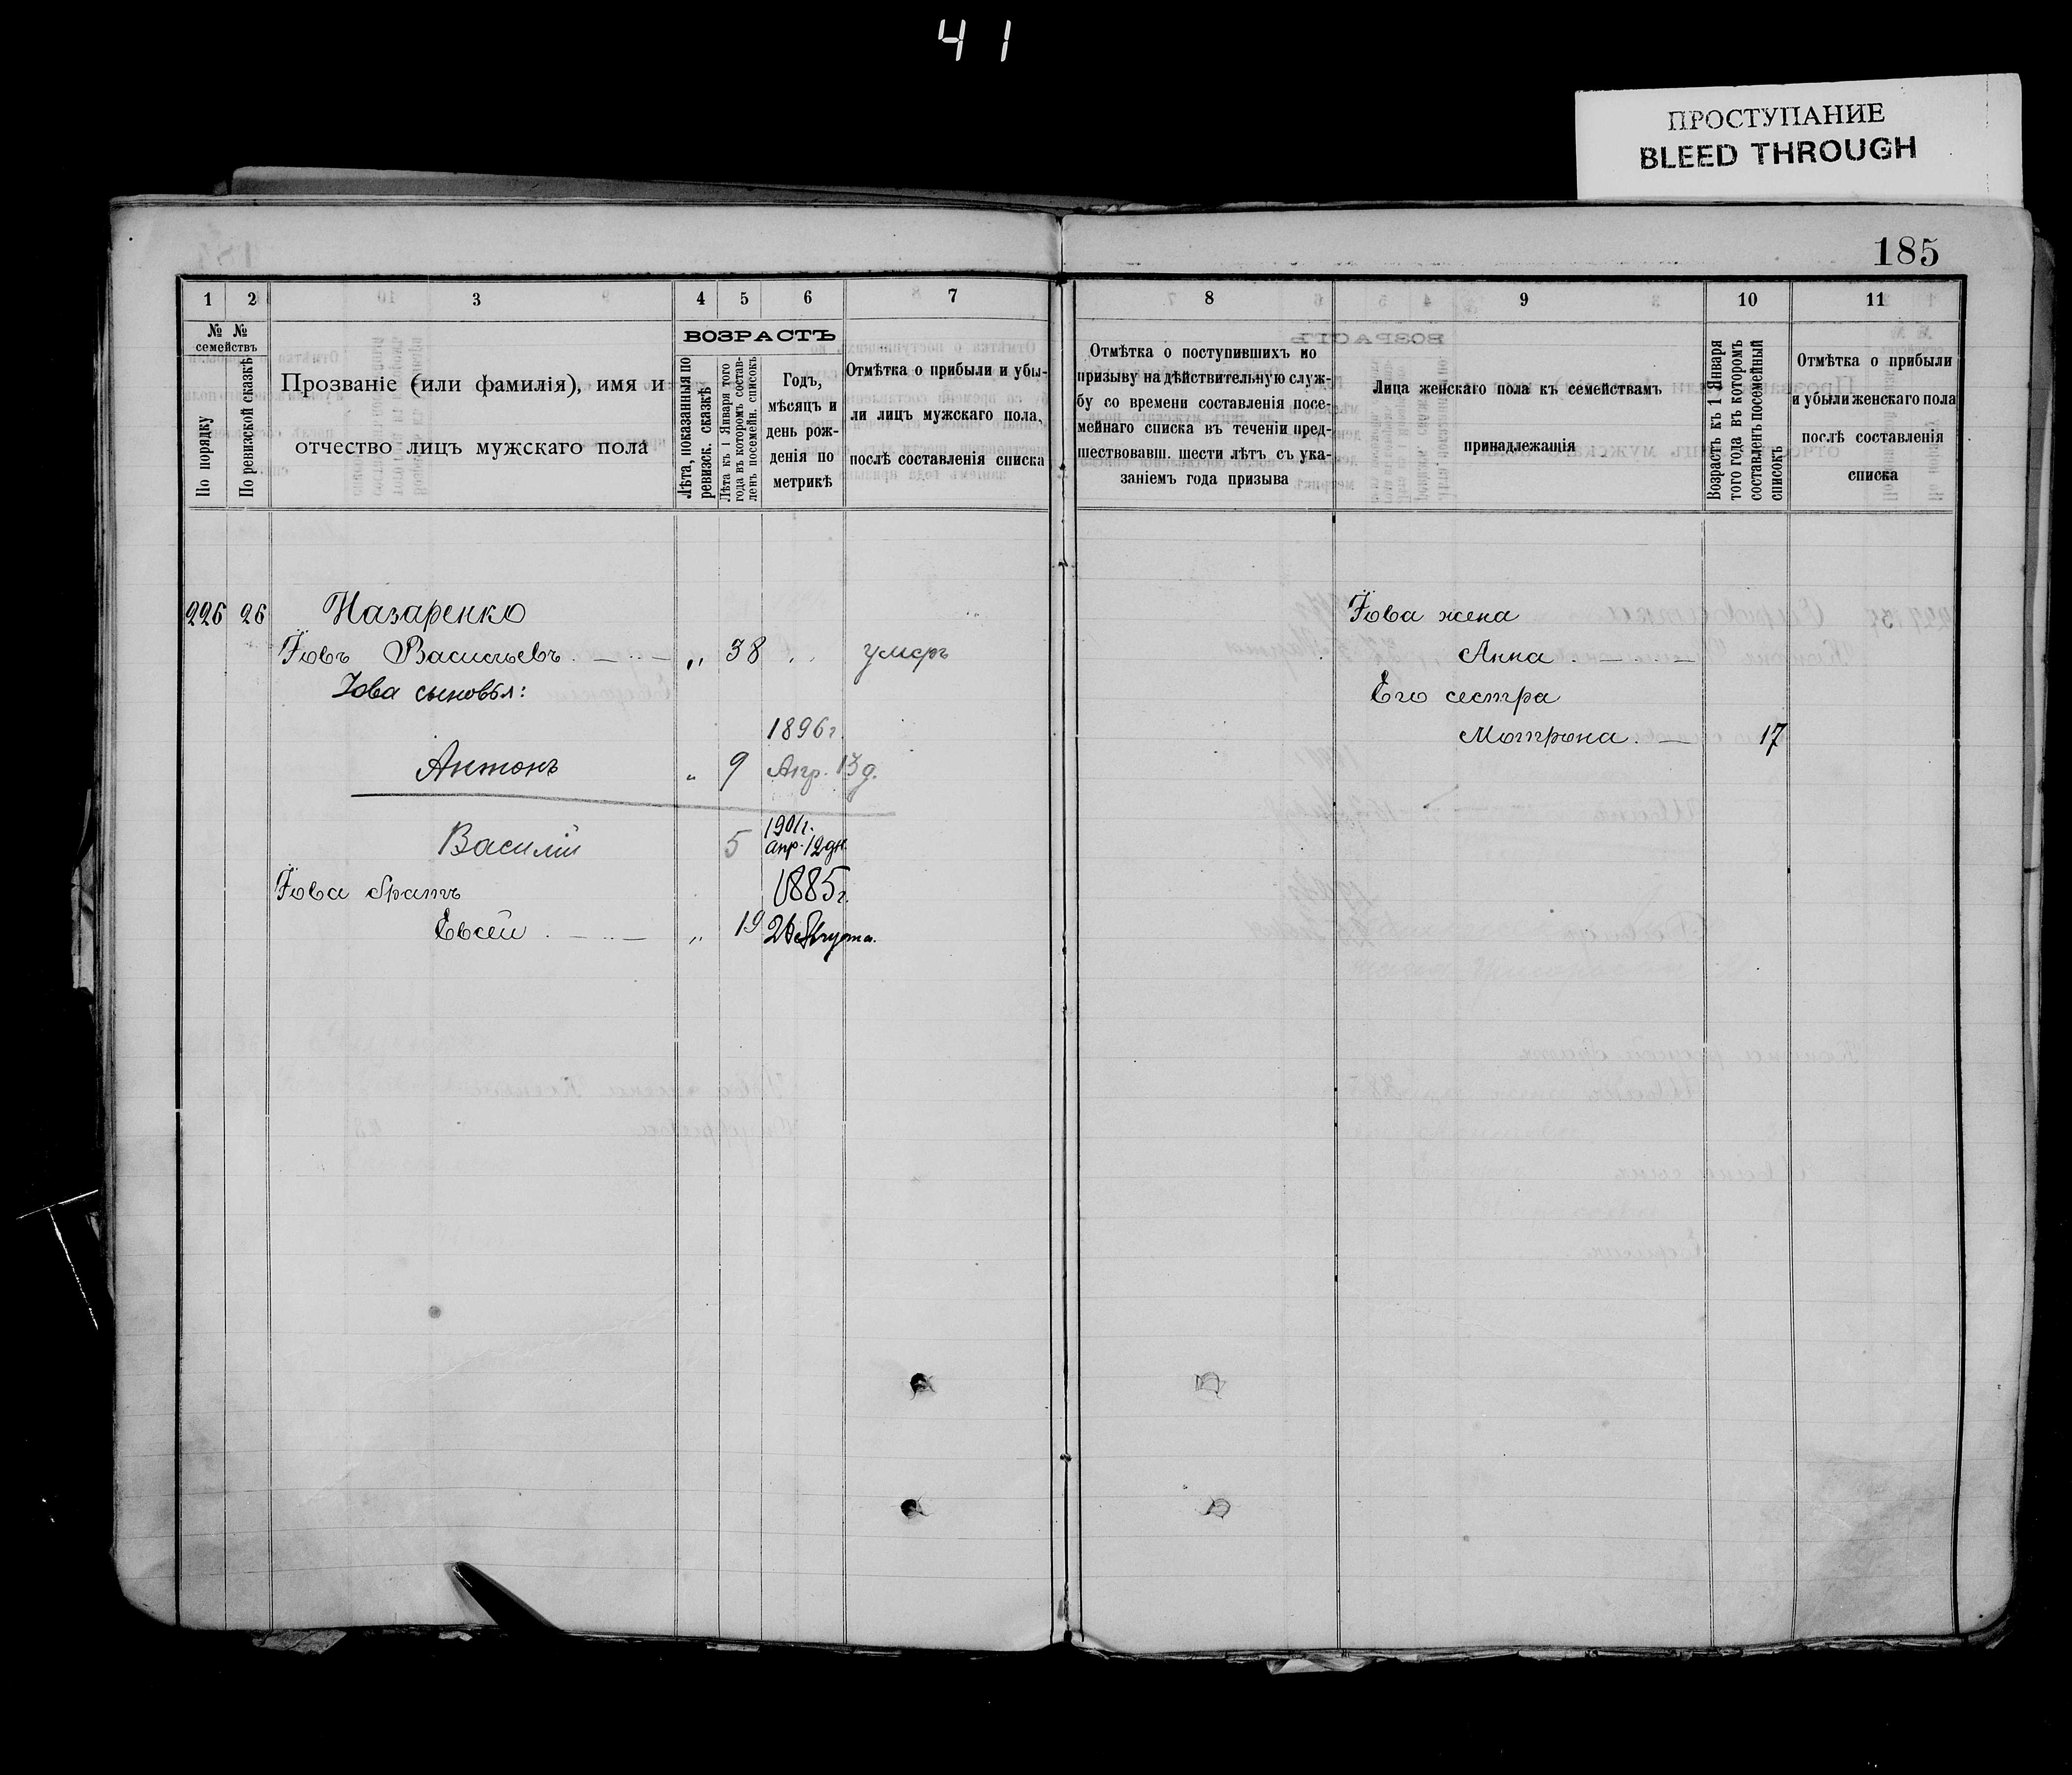 41
ПРОСТУПАНИЕ
BLEED THROUGH
185
1 2 3 4 5 6 7
№ № семействъ
По порядку
По ревизской сказкѣ
Прозваніе (или фамилія), имя и
отчество лицъ мужскаго пола
ВОЗРАСТЪ
Лѣта, показанныя по
ревизск. сказкѣ
Лѣта къ 1 Января того
года въ которомъ состав-
ленъ посемейн. списокъ
Годъ,
мѣсяцъ и
день рож-
денія по
метрикѣ
Отмѣтка о прибыли и убы-
ли лицъ мужскаго пола,
послѣ составленія списка
226 26 Назаренко
Іовъ Васильевъ „ 38 умеръ
Іова сыновья:
1896 г.
Антонъ „ 9 Апр. 13 д.
1901 г.
Василій 5 апр. 12 дн.
Іова братъ 1885 г.
Евсей „ 19 Августа.
8 9 10 11
Отмѣтка о поступившихъ по
призыву на дѣйствительную служ-
бу со времени составленія посе-
мейнаго списка въ теченіи пред-
шествовавш. шести лѣтъ съ ука-
заніемъ года призыва
Лица женскаго пола къ семействамъ
принадлежащія
Возрастъ къ 1 Января
того года въ которомъ
составленъ посемейный
списокъ
Отмѣтка о прибыли
и убыли женскаго пола
послѣ составленія
списка
Іова жена
Анна
Его сестра
Мотрона 17